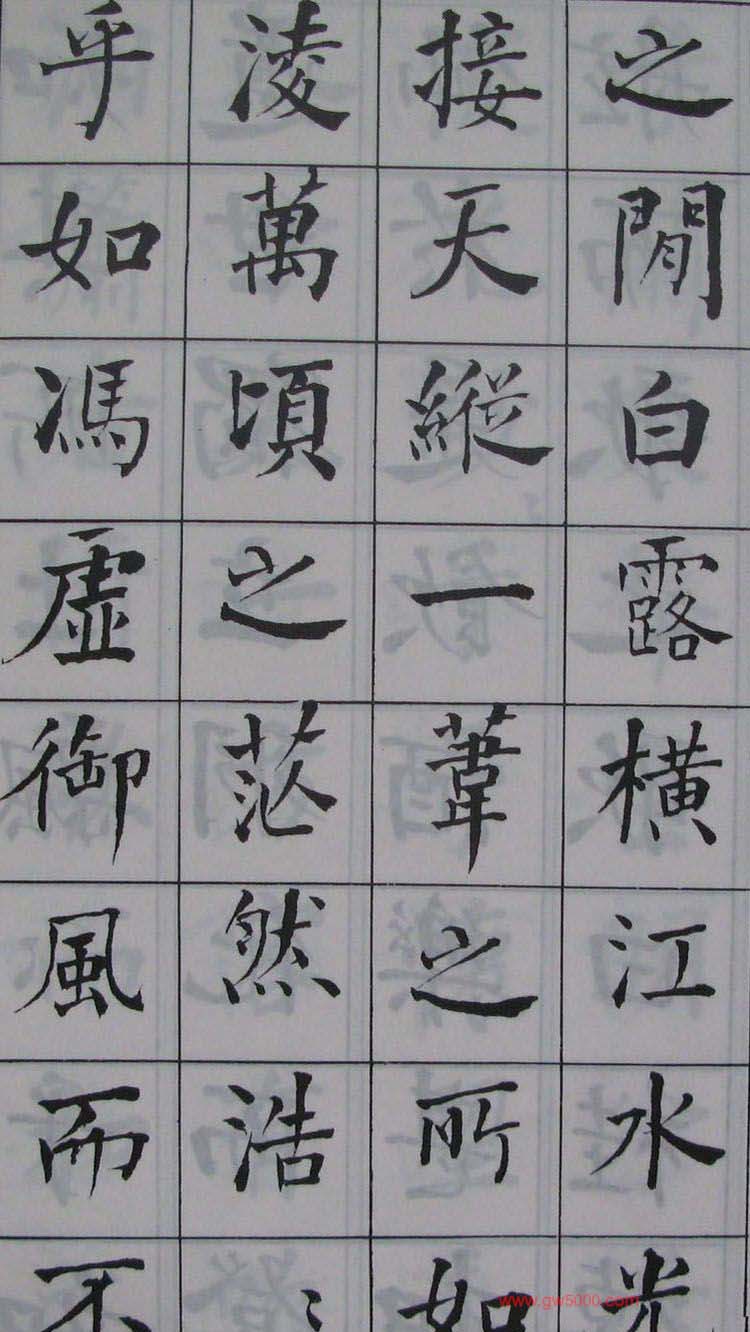 之閒白露橫江水光
接天縱一葦之所如
淩萬頃之茫然浩〻
乎如馮虛御風而不
www.gw5000.com